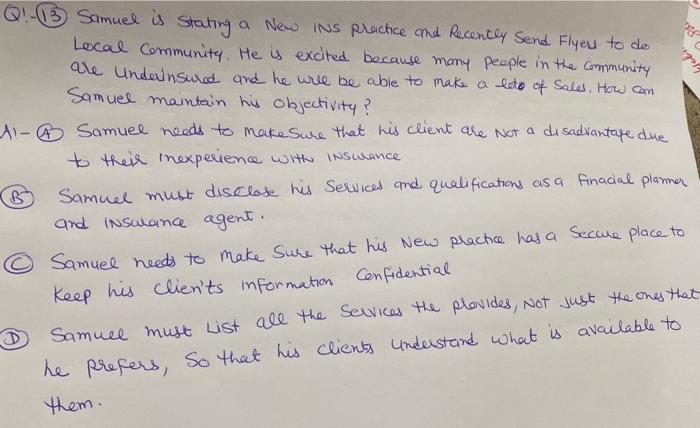 Q!-(13) Samuel is Stating a New INS practice and Recently Send Flyers to do
Local Community. He is excited because many people in the Community
are Underinsured and he will be able to make a lots of Sales. How Can
Samuel maintain his Objectivity?
A1- (A) Samuel needs to make Sure that his client are Not a disadvantage due
to their inexperience with INSURANCE
(B) Samuel must disclose his Services and qualifications as a finacial planner
and INSURANCE agent.
(C) Samuel needs to make Sure that his New practice has a Secure place to
Keep his clien'ts information Confidential
(D) Samuel must List all the Services the provides, Not Just the ones that
he prefers, So that his clients understand what is available to
them.